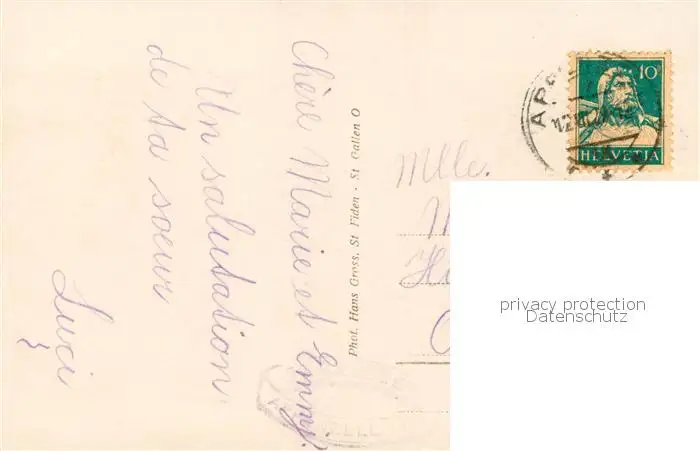 Chère Marie et Emmy.
Un salutation
de ta soeur
Luci
Phot. Hans Gross, St Fiden - St Gallen O
Mlle.
10
HELVETIA
privacy protection
Datenschutz